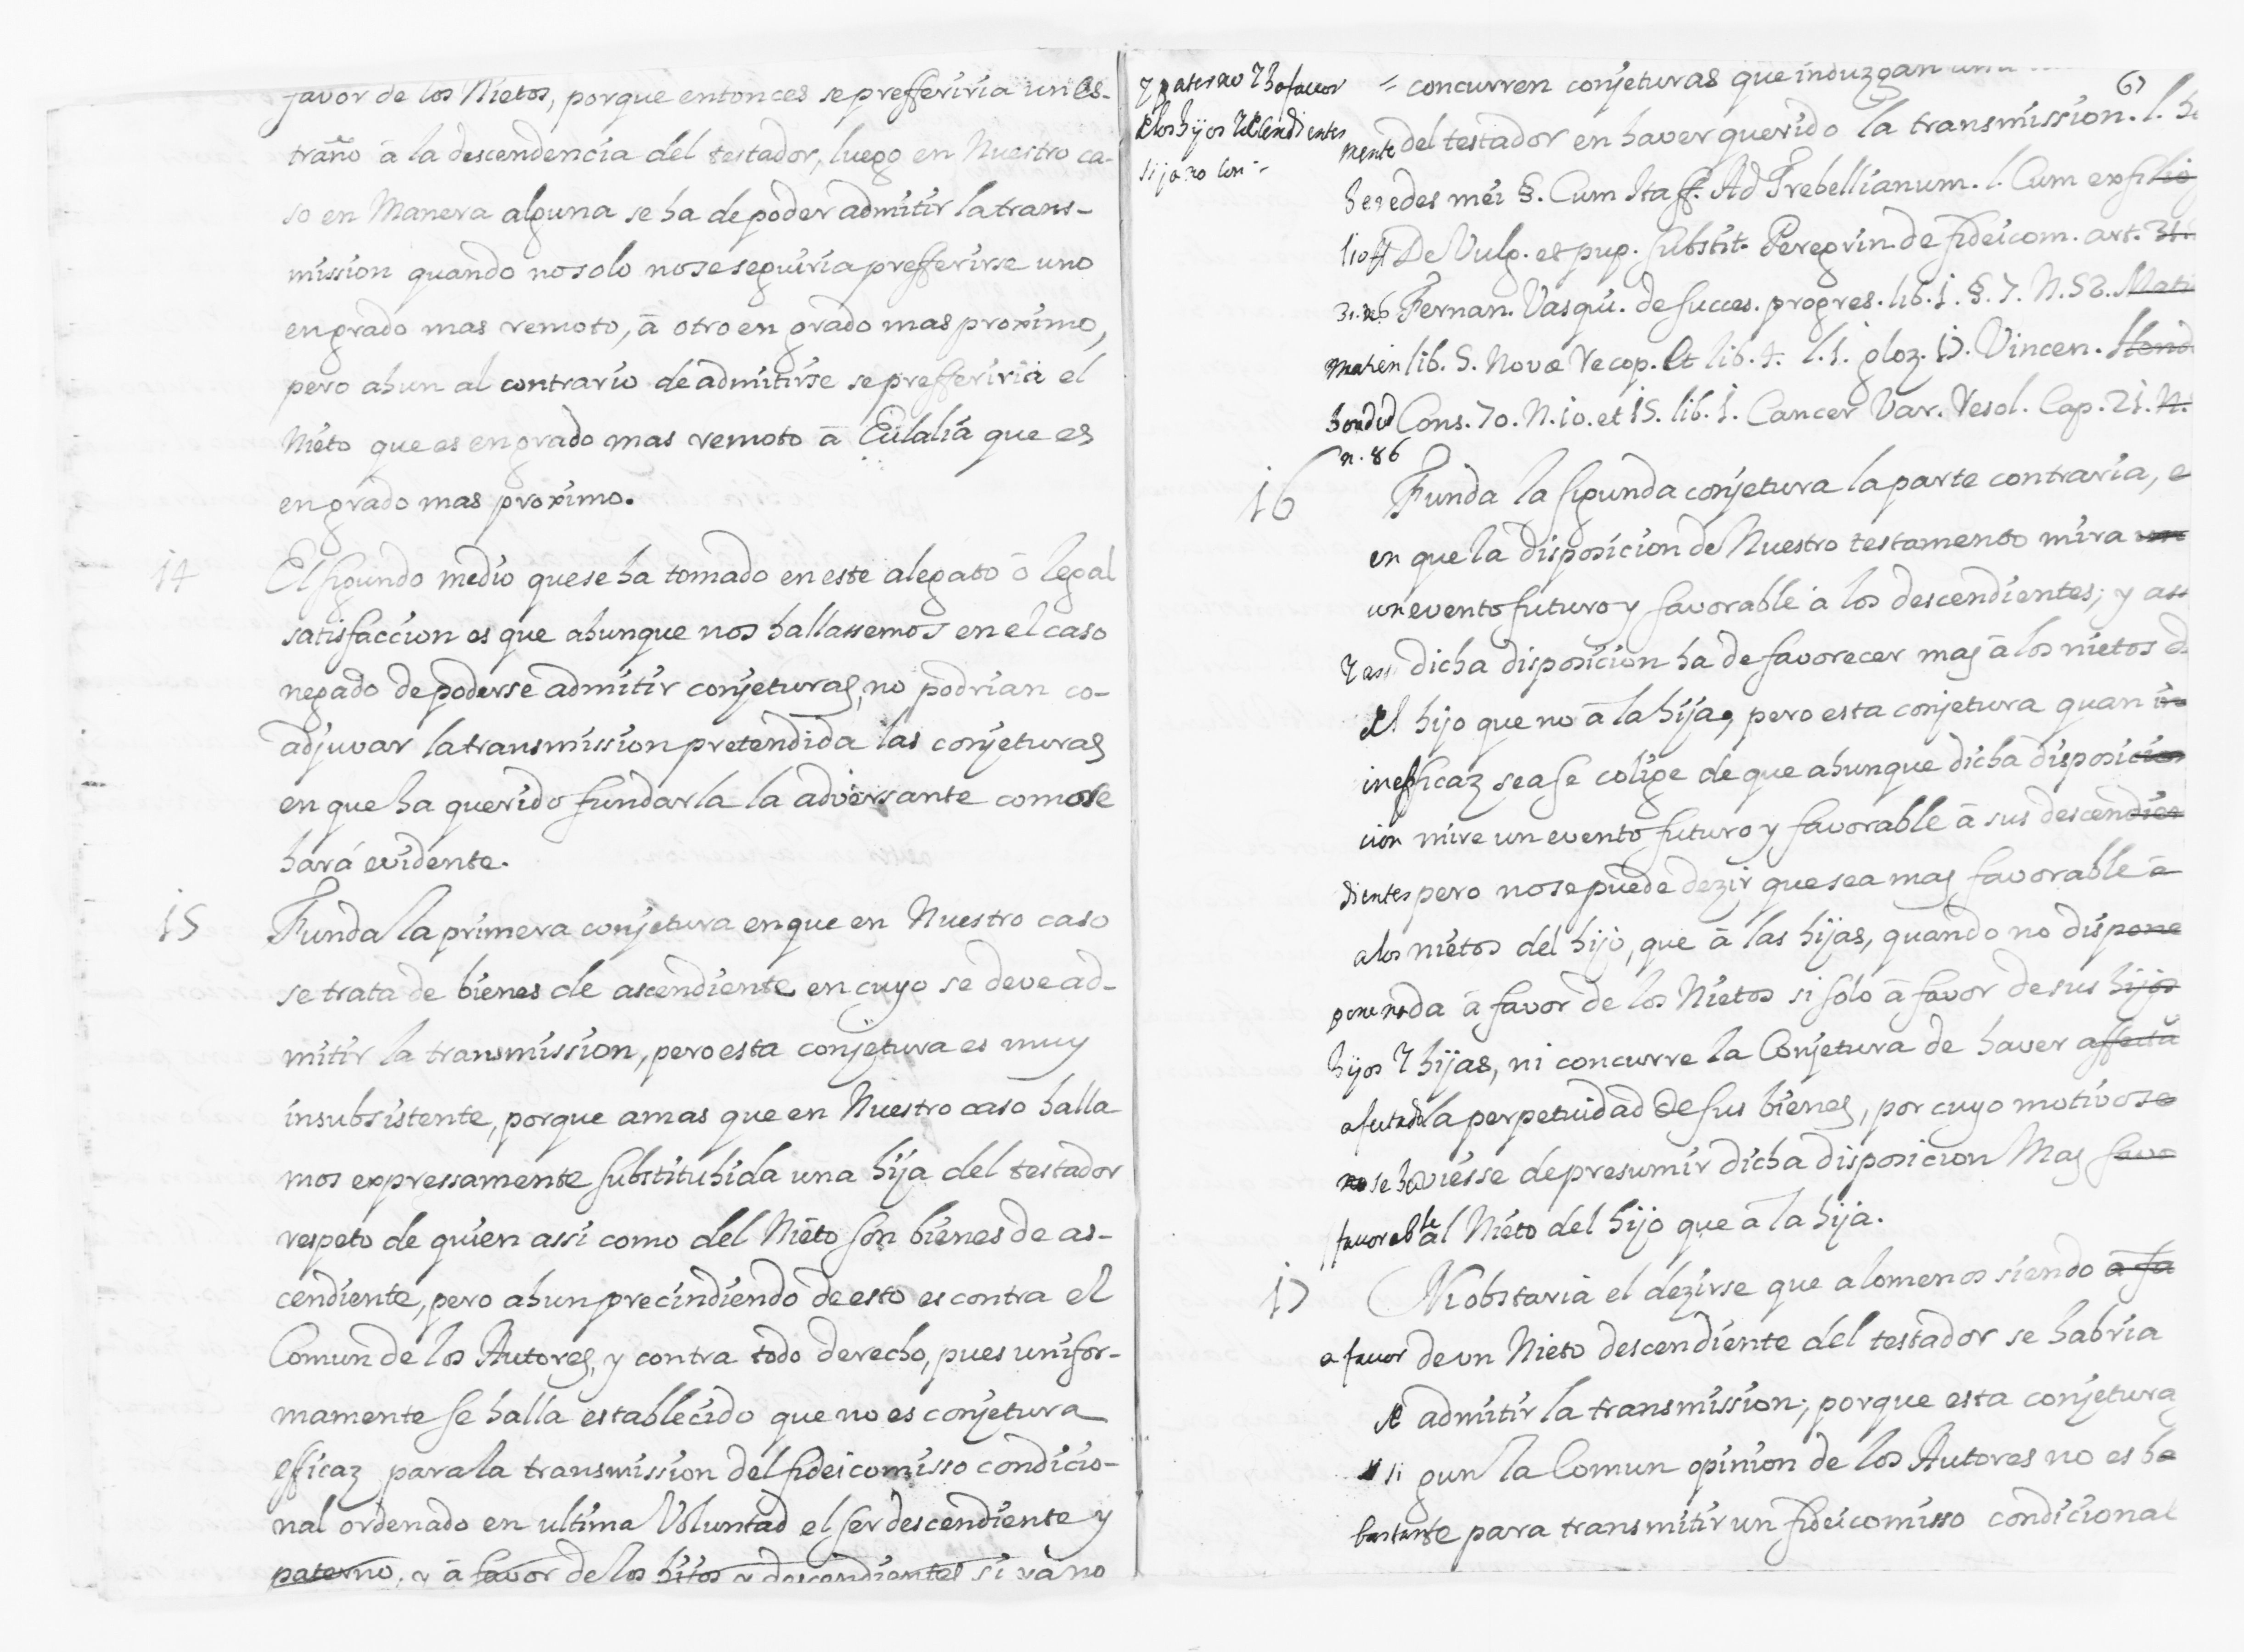 favor de los Nietos, porque entonces se prefferiria un es-
traño â la descendencia del testador, luego en Nuestro ca-
so en Manera alguna se ha de poder admitir la trans-
mission quando no solo no se seguiria prefferirse uno
en grado mas remoto, â otro en grado mas proximo,
pero ahun al contrario de admitirse se prefferiria el
Nieto que es en grado mas remoto â Eulalia que es
en grado mas proximo.
14 El segundo medio que se ha tomado en este alegato ô legal
satisfaccion es que ahunque nos hallassemos en el caso
negado de poderse admitir conjeturas, no podrian co-
adjuvar la transmission pretendida las conjeturas
en que ha querido fundarla la adversante como se
hará evidente.
15 Funda la primera conjetura en que en Nuestro caso
se trata de bienes de ascendiente en cuyo se deve ad-
mitir la transmission, pero esta conjetura es muy
insubsistente, porque amas que en Nuestro caso halla
mos expressamente substituhida una hija del testador
respeto de quien assi como del Nieto son bienes de as-
cendiente, pero ahun precindiendo de esto es contra el
Comun de los Autores, y contra todo derecho, pues unifor-
mamente se halla establecido que no es conjetura
efficaz para la transmission del fideicomisso condicio-
nal ordenado en ultima Voluntad el ser descendiente y
paterno, y â favor de los hijos y descendientes si ya no
y paterno y a favor
de los hijos y descendientes
si ya no con-
67
= concurren conjeturas que induzgan
mente del testador en haver querido la transmission. l.
heredes mei §. Cum Ita ff. Ad Trebellianum. l. Cum ex filio
lio ff De Vulg. et pup. substit. Peregrin. de fideicom. art. 31.
31. n.6 Fernan. Vasqu. de succes. progres. lib. 1. §. 7. N. 58. Mati
Matien lib. 5. Novæ Recop. et lib. 4. l. 1. gloz. 17. Vincen. Hond
hondid Cons. 70. N. 10. et 15. lib. 1. Cancer Var. Resol. Cap. 21. N.
n. 86
16 Funda la segunda conjetura la parte contraria, e
en que la disposicion de Nuestro testamento mira un
un evento futuro y favorable â los descendientes; y ass
y assi dicha disposicion ha de favorecer mas â los nietos d
del hijo que no â la hija, pero esta conjetura quan in
inefficaz sea se colige de que ahunque dicha disposicion
cion mire un evento futuro y favorable â sus descendien
dientes pero no se puede dezir que sea mas favorable â
a los nietos del hijo, que â las hijas, quando no dispone
pone nada â favor de los Nietos si solo â favor de sus hijos
hijos y hijas, ni concurre la Conjetura de haver affecta
afectado la perpetuidad de sus bienes, por cuyo motivo se
se haviesse de presumir dicha disposicion Mas favo
favorable al Nieto del hijo que â la hija.
17 Ni obstaria el dezirse que alomenos siendo â fa
a favor de un Nieto descendiente del testador se habria
de admitir la transmission; porque esta conjetura
si gun la Comun opinion de los Autores no es ba
bastante para transmitir un fideicomisso condicional